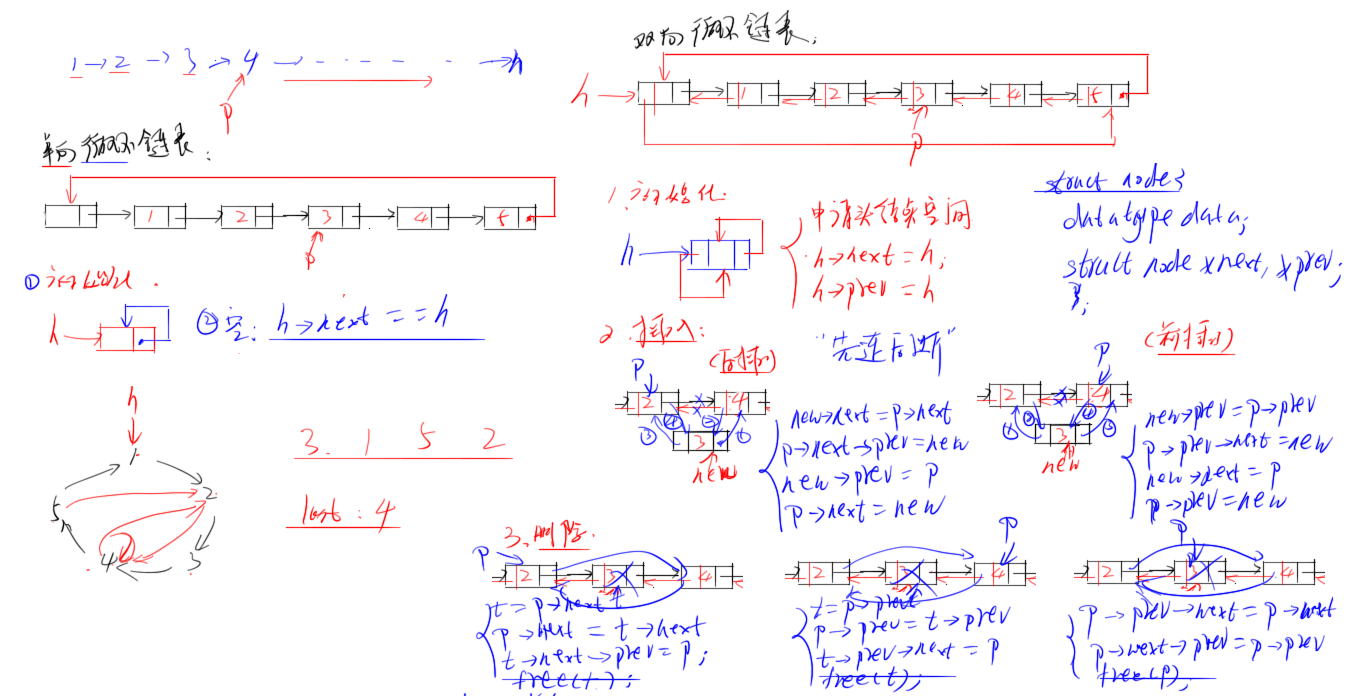 1→2→3→4→-·--·→n
p
单向循环链表:
1 2 3 4 5
p
①初始化.
h
②空: h→next==h
h
1
5 2
4 3
3. 1 5 2
last:4
双向循环链表;
h 1 2 3 4 5
p
1.初始化.
h
申请头结点空间
h→next=h;
h→prev=h
struct node{
datatype data;
struct node *next, *prev;
};
2.插入:
(后插)
"先连后断"
(前插)
p
2 4
3
new
new→next=p→next
p→next→prev=new
new→prev=p
p→next=new
p
2 4
3
new
new→prev=p→prev
p→prev→next=new
new→next=p
p→prev=new
3.删除.
p
2 3 4
t
t=p→next
p→next=t→next
t→next→prev=p;
free(t);
p
2 3 4
t=p→prev
p→prev=t→prev
t→prev→next=p
free(t);
p
2 3 4
p→prev→next=p→next
p→next→prev=p→prev
free(p);